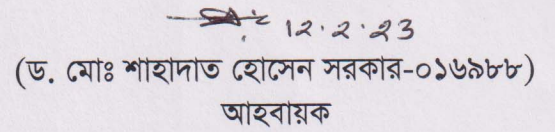 12.2.23
(ড. মোঃ শাহাদাত হোসেন সরকার-০১৬৯৮৮)
আহবায়ক